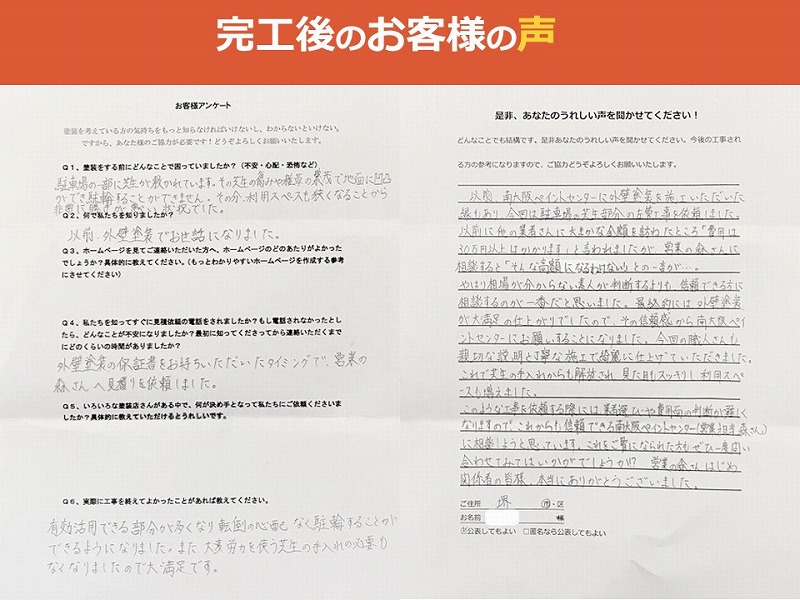 完工後のお客様の声
お客様アンケート
塗装を考えている方の気持ちをもっと知らなければいけないし、わからないといけない。
ですから、あなた様のご協力が必要です！どうぞよろしくお願いいたします。
Q１、塗装をする前にどんなことで困っていましたか？（不安・心配・恐怖など）
駐車場の一部に芝生が敷かれています。その芝生の傷みや雑草の繁茂で地面に凹凸
ができ駐輪することができません。その分、利用スペースも狭くなることから
非常に勝手が悪い状況でした。
Q２、何で私たちを知りましたか？
以前、外壁塗装でお世話になりました。
Q３、ホームページを見てご連絡いただいた方へ、ホームページのどのあたりがよかった
でしょうか？具体的に教えてください。（もっとわかりやすいホームページを作成する参考
にさせてください）
Q４、私たちを知ってすぐに見積依頼の電話をされましたか？もし電話されなかったとし
たら、どんなことが不安になりましたか？最初に知ってくださってから連絡いただくまで
にどのくらいの時間がありましたか？
外壁塗装の保証書をお持ちいただいたタイミングで、営業の
森さんへ見積りを依頼しました。
Q５、いろいろな塗装店さんがある中で、何が決め手となって私たちにご依頼くださいま
したか？具体的に教えていただけるとうれしいです。
Q６、実際に工事を終えてよかったことがあれば教えてください。
有効活用できる部分が多くなり転倒の心配なく駐輪することが
できるようになりました。また大変労力を使う芝生の手入れの必要も
なくなりましたので大満足です。
是非、あなたのうれしい声を聞かせてください！
どんなことでも結構です。是非あなたのうれしい声を聞かせてください。今後の工事され
る方の参考になりますので、ご協力どうぞよろしくお願いいたします。
以前、南大阪ペイントセンターに外壁塗装を施工いただいた
縁もあり、今回は駐車場の芝生部分の左官工事を依頼しました。
以前に他の業者さんに大まかな金額を訪ねたところ「費用は
30万円以上はかかります」と言われましたが、営業の森さんに
相談すると「そんな高額になるわけない!」との一言が…。
やはり相場が分からない素人が判断するよりも、信頼できる方に
相談するのが一番だと思いました。最終的には外壁塗装
が大満足の仕上がりでしたので、その信頼感から南大阪ペイ
ントセンターにお願いすることになりました。今回の職人さんも
親切な説明と丁寧な施工で綺麗に仕上げていただきました。
これで芝生の手入れからも解放され見た目もスッキリし利用スペ
ースも増えました。
このような工事を依頼する際には業者選びや費用面の判断が難しく
なりますので、これからも信頼できる南大阪ペイントセンター(営業担当森さん)
に相談しようと思っています。これをご覧になられた方もぜひ一度問い
合わせてみてはいかがでしょうか!? 営業の森さんはじめ
関係者の皆様、本当にありがとうございました。
ご住所 堺 市・区
お名前 様
☑公表してもよい □匿名なら公表してもよい